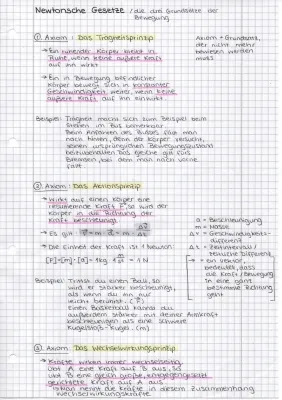 Newtonsche Gesetze / die drei Grundsätze der
Bewegung
① Axiom: Das Trägheitsprinzip
Axiom = Grundsatz,
der nicht mehr
bewiesen werden
muss
→ Ein ruhender Körper bleibt in
Ruhe, wenn keine äußere Kraft
auf ihn wirkt
→ Ein in Bewegung befindlicher
Körper bewegt sich in konstanter
Geschwindigkeit weiter, wenn keine
äußere Kraft auf ihn einwirkt
Beispiel: Trägheit macht sich zum Beispiel beim
Stehen im Bus bemerkbar.
Beim Anfahren des Busses fällt man
nach hinten, denn der Körper versucht,
seinen ursprünglichen Bewegungszustand
beizubehalten. Das gleiche gilt fürs
Bremsen, bei dem man nach vorne
fällt
② Axiom: Das Aktionsprinzip
→ Wirkt auf einen Körper eine
resultierende Kraft F, so wird der
Körper in die Richtung der
Kraft beschleunigt
→ Es gilt: F = m · a = m · Δv/Δt
→ Die Einheit der Kraft ist 1 Newton:
[F] = [m] · [a] = 1 kg · m/s² = 1 N
a = Beschleunigung
m = Masse
Δv = Geschwindigkeits-
differenz
Δt = Zeitintervall /
zeitliche Differenz
→ = ein Vektor
bedeutet, dass
die Kraft / Bewegung
in eine ganz
bestimmte Richtung
geht
Beispiel: Trittst du einen Ball, so
wird er stärker beschleunigt,
als wenn du ihn nur
leicht berührst. (F)
Einen Basketball kannst du
außerdem stärker mit deiner Armkraft
beschleunigen als eine schwere
Kugelstoß-Kugel. (m)
③ Axiom: Das Wechselwirkungsprinzip
→ Kräfte wirken immer wechselseitig.
Übt A eine Kraft auf B aus, so
übt B eine gleich große, entgegengesetzt
gerichtete Kraft auf A aus.
→ Man nennt die Kräfte in diesem Zusammenhang
Wechselwirkungskräfte.